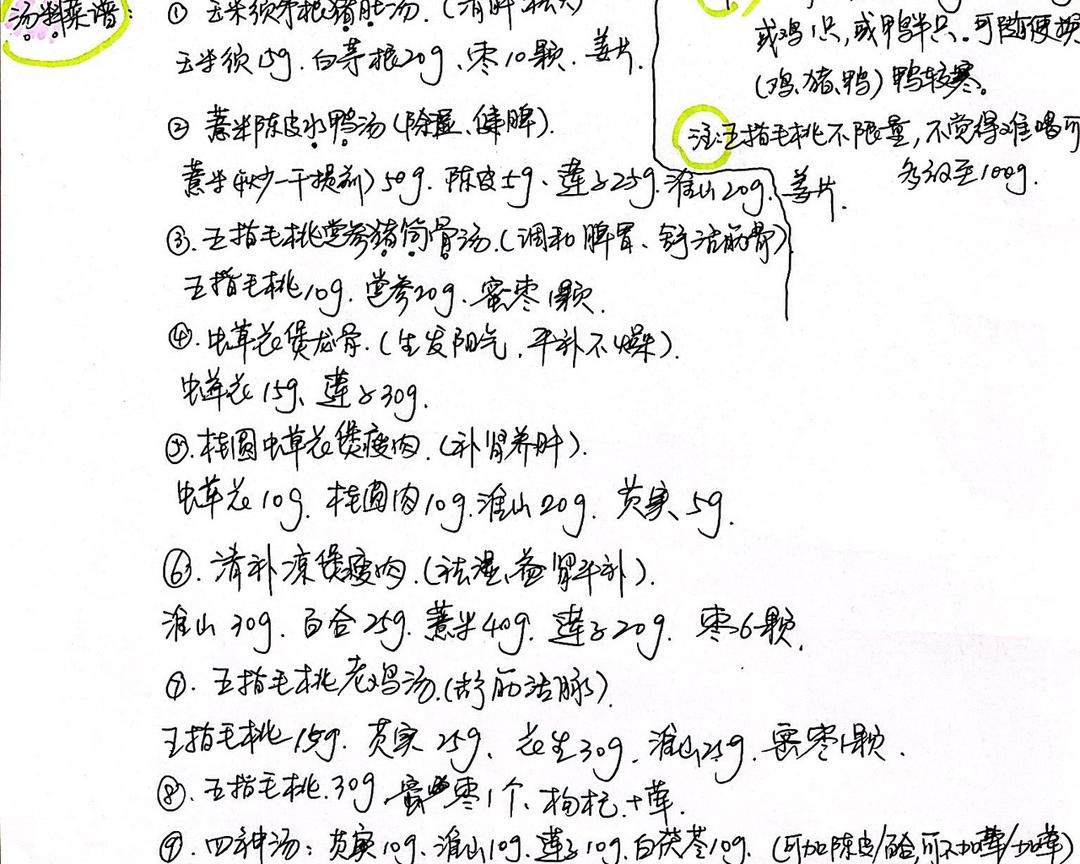 汤料菜谱:
① 玉米须茅根猪肚汤.
玉米须15g. 白茅根20g、枣10颗. 姜片.
② 薏米陈皮水鸭汤(除湿、健脾).
薏米(炒一干损前)50g. 陈皮5g、莲子25g. 淮山20g. 姜片.
③. 五指毛桃党参猪筒骨汤.(调和脾胃、舒活筋骨)
五指毛桃10g. 党参20g. 蜜枣1颗.
④. 虫草花煲龙骨.(生发阳气,平补不燥).
虫草花15g、莲子30g.
⑤. 桂圆虫草花煲瘦肉.(补肾养肝).
虫草花10g. 桂圆肉10g. 淮山20g. 芡实5g.
⑥. 清补凉煲瘦肉.(祛湿、益肾平补).
淮山30g. 百合25g. 薏米40g. 莲子20g. 枣6颗.
⑦. 五指毛桃老鸡汤.(舒筋活脉)
五指毛桃15g. 芡实25g、花生30g. 淮山25g. 蜜枣1颗.
⑧. 五指毛桃.30g. 蜜枣1个、枸杞.
⑨. 四神汤:芡实10g、淮山10g、莲子10g.白茯苓10g.
或鸡1只,或鸭半只.可随便换
(鸡、猪、鸭)鸭较寒。
注:五指毛桃不限量,不觉得难喝可
多级至100g.